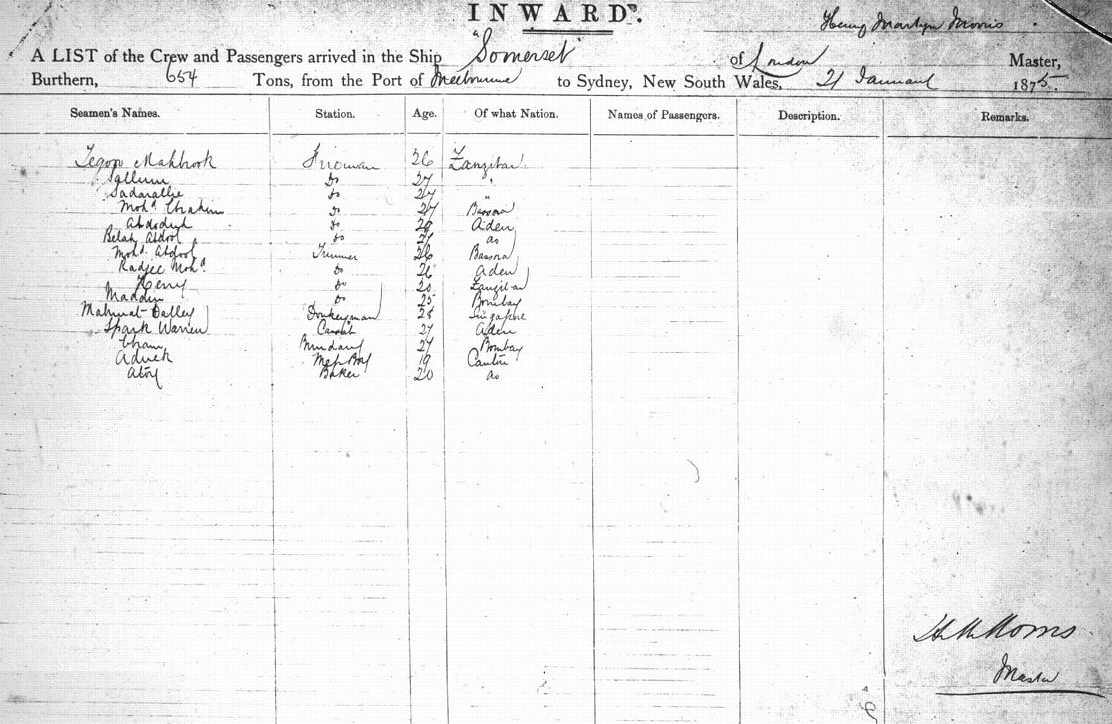 INWARDS.
Henry Martyn Morris
A LIST of the Crew and Passengers arrived in the Ship "Somerset" of London Master,
Burthern, 654 Tons, from the Port of Melbourne to Sydney, New South Wales, 21 January 1875.
Seamen's Names. Station. Age. Of what Nation. Names of Passengers. Description. Remarks.
Mahbrook Fireman 26 Zanzibar
Sallum Do 27 "
Sadarallie Do 27 "
Mohd Ebrahim Do 27 Bassora
Do Aden
Belah Abdool Do do
Mohd Abdool Trimmer 26 Bassora
Radjee Mohd Do 26 Aden
Henry Do 20 Zanzibar
Do 25 Bombay
Mahmat Dalley Donkeyman 25 Singapore
Warren 27 Aden
27 Bombay
Mess Boy 19 Canton
Baker 20 do
H M Morris
Master